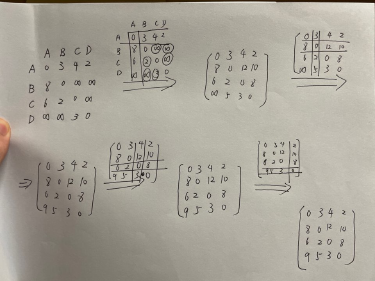 A B C D
A 0 3 4 2
B 8 0 ∞ ∞
C 6 2 0 ∞
D ∞ ∞ 3 0
A B C D
A 0 3 4 2
B 8 0 ∞ ∞
C 6 2 0 ∞
D ∞ ∞ 3 0
0 3 4 2
8 0 12 10
6 2 0 8
∞ 5 3 0
0 3 4 2
8 0 12 10
6 2 0 8
∞ 5 3 0
⇒
0 3 4 2
8 0 12 10
6 2 0 8
9 5 3 0
0 3 4 2
8 0 12 10
6 2 0 8
9 5 3 0
0 3 4 2
8 0 12 10
6 2 0 8
9 5 3 0
0 3 4 2
8 0 12 10
6 2 0 8
9 5 3 0
0 3 4 2
8 0 12 10
6 2 0 8
9 5 3 0